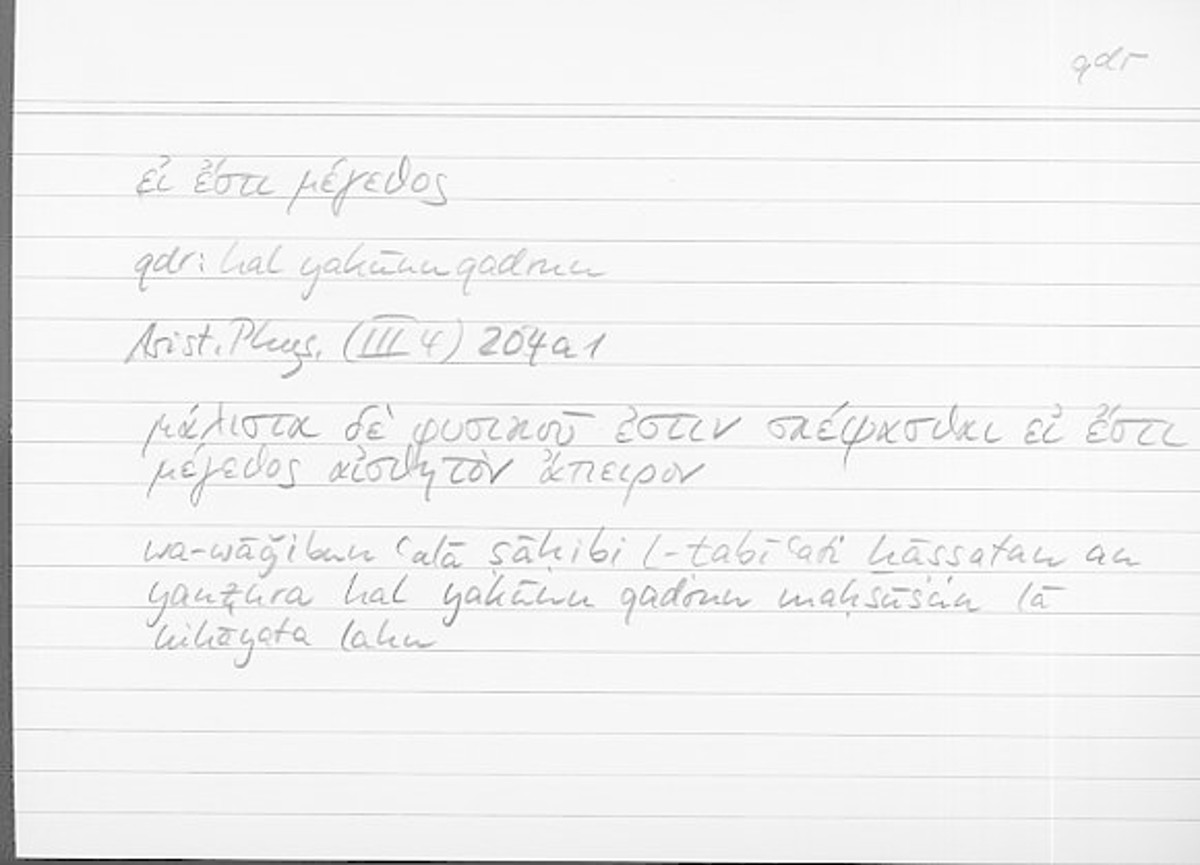 qdr
εἰ ἔστι μέγεθος
qdr: hal yakūnu qadrun
Arist. Phys. (III 4) 204a1
μάλιστα δὲ φυσικοῦ ἐστιν σκέψασθαι εἰ ἔστι
μέγεθος αἰσθητὸν ἄπειρον
wa-wāǧibun ʿalā ṣāḥibi l-tabīʿati hāssatan an
yanẓura hal yakūnu qadrun maḥsūsun lā
nihāyata lahu